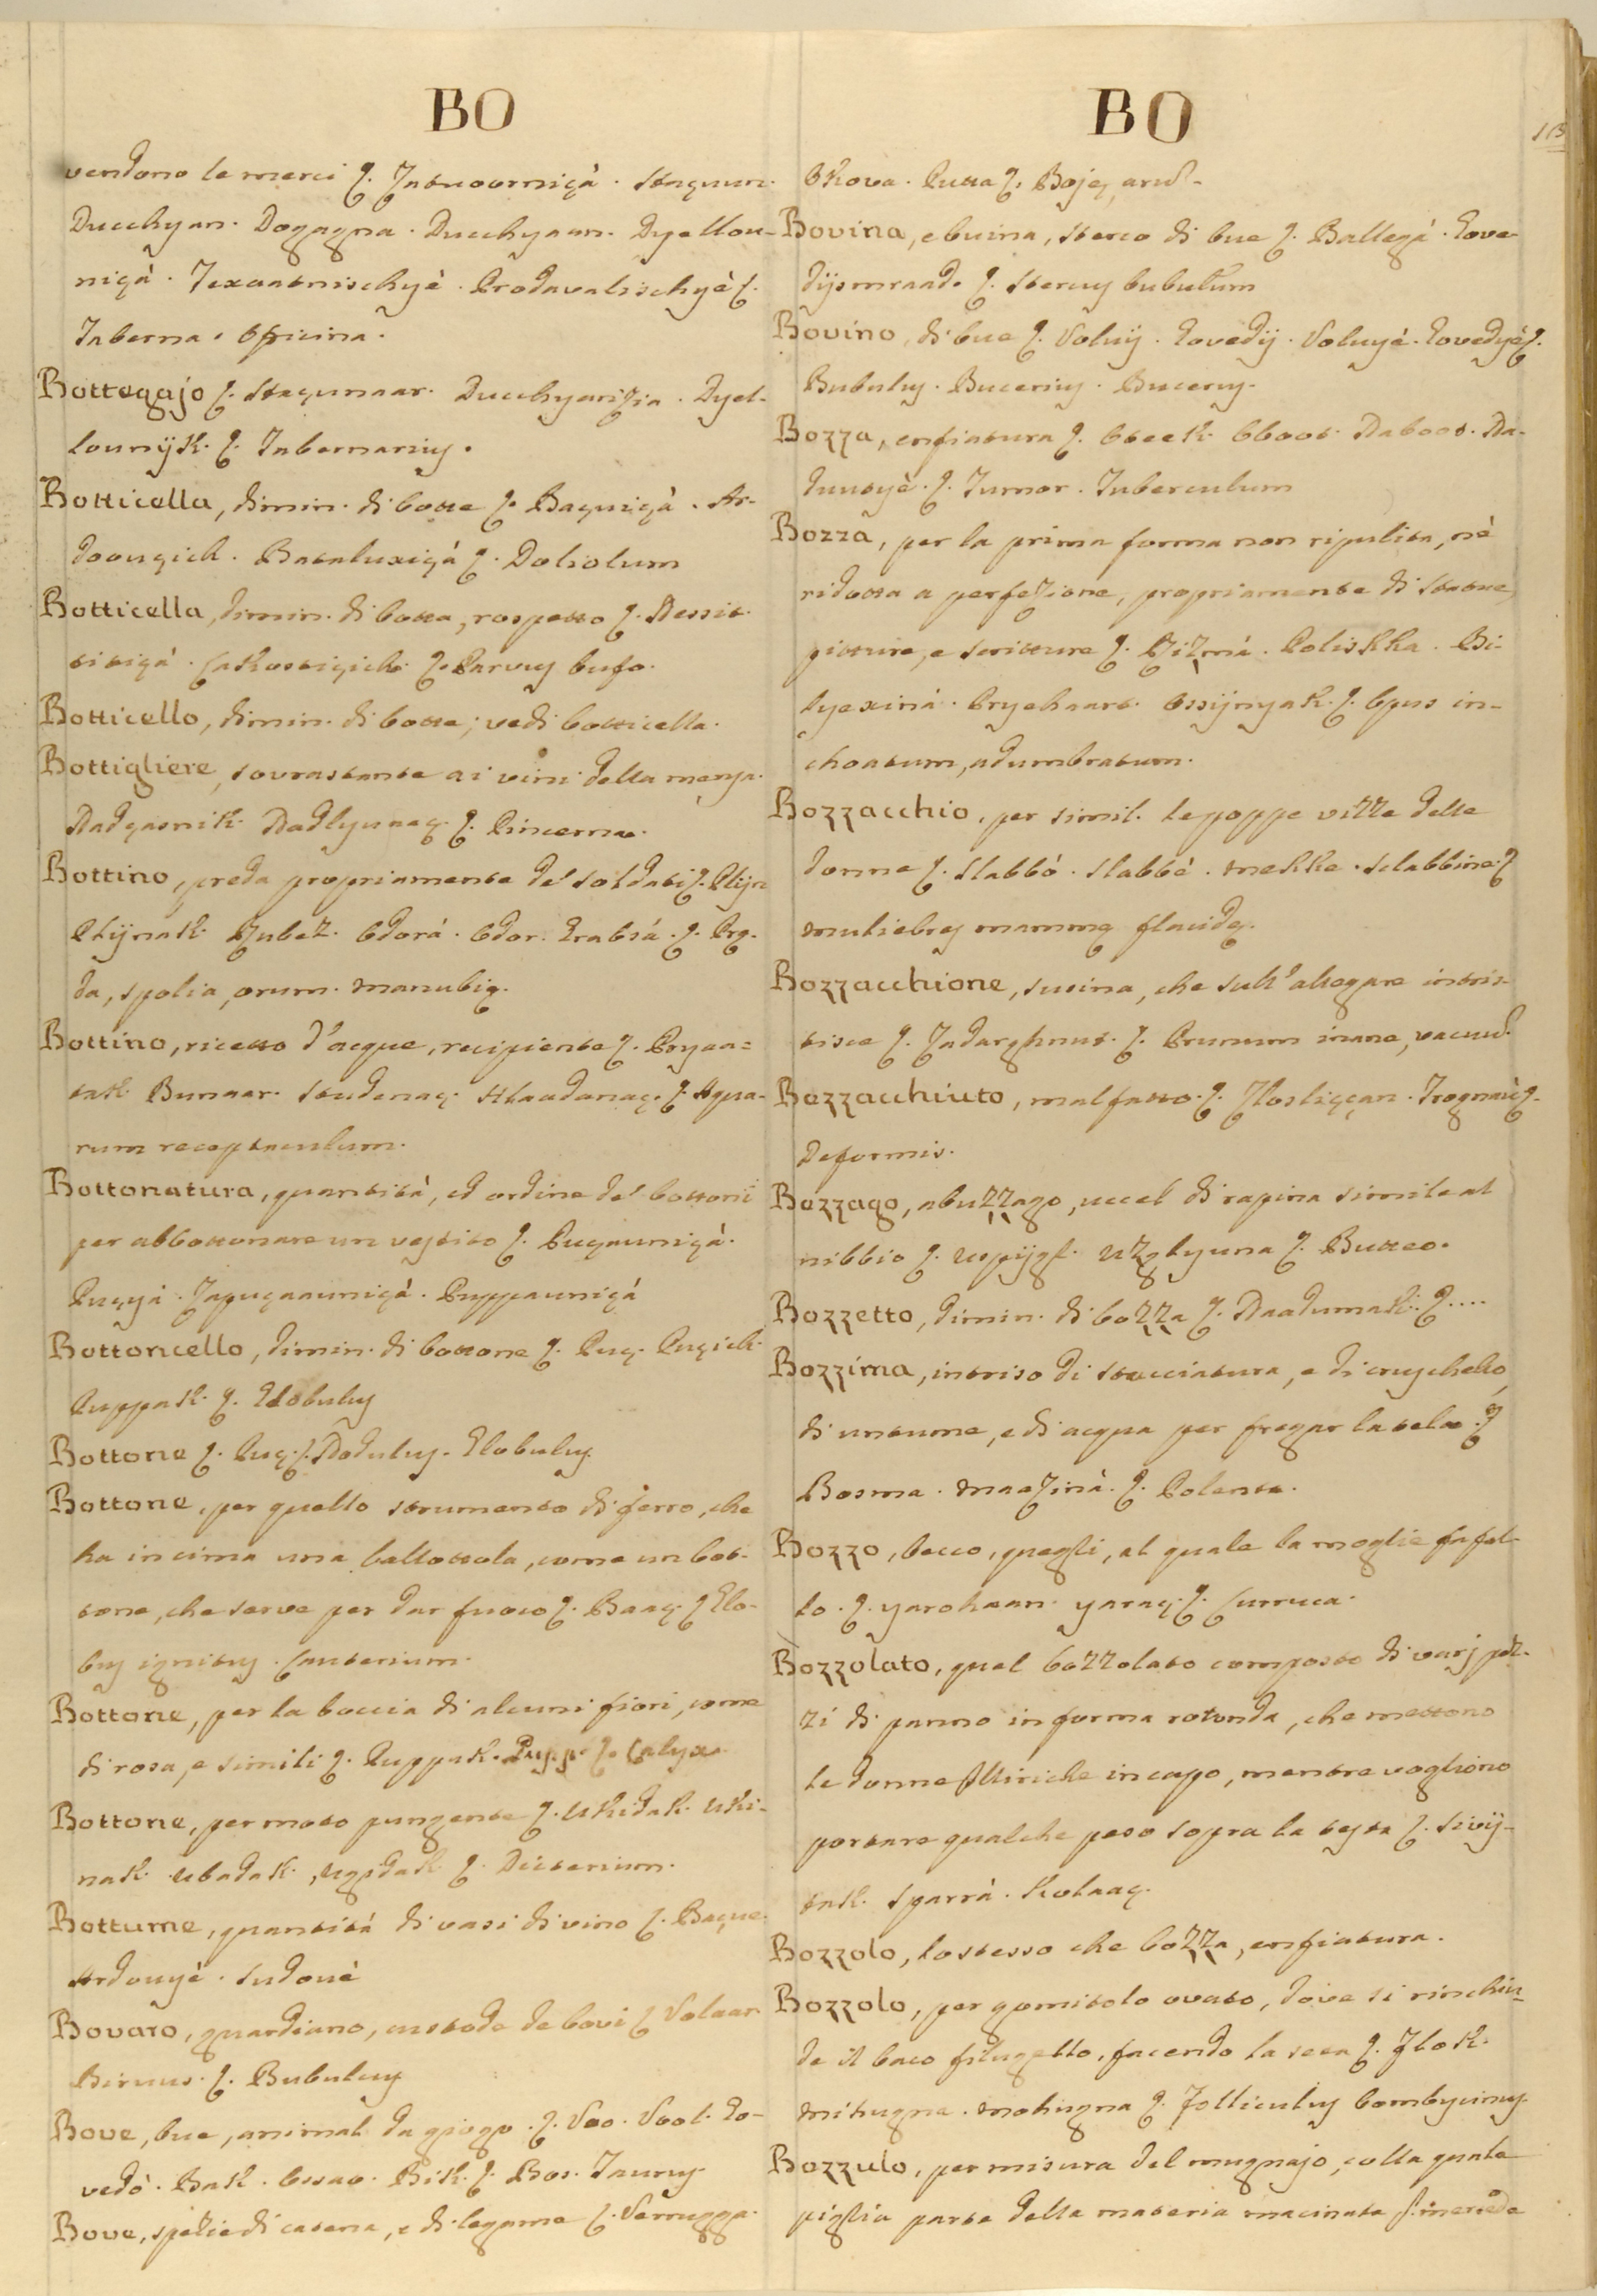 BO
vendono le merci ζ. Stagnun.
Ducchyan. Dogagna. Ducchyaan. Dyellou-
nigà. Prodavalischyè ζ.
Taberna. Officina.
Bottegajo ζ. Stagunaar. Ducchyarizia. Dyel-
lounijk. ζ. Tabernarius.
Botticella, dimin. di botte ζ. Bagnigà. Ar-
doougich. Bataluxigà ζ. Doliolum
Botticella, dimin. di botta, rospetto ζ.
ζ. Parvus bufo.
Botticello, dimin. di botte; vedi botticella.
Bottigliere, sovrastante ai vini della mensa.
ζ. Pincerna.
Bottino, preda propriamente de' soldati ζ. Plijn
Plijnak. Odorá. Odor. Grabsá. ζ. Prę-
da, spolia, orum. manubię.
Bottino, ricetto d'acque, recipiente ζ.
Bunaar. Studenaç. Hlaadanaç. ζ. Aqua-
rum receptaculum.
Bottonatura, quantità, ed ordine de' bottoni
per abbottonare un vestito ζ. Puçaunigà.
Puçyá. Zapuçaaunigà. Puppaunigà
Bottoncello, dimin. di bottone ζ. Puç. Puçich.
Puppak. ζ. Globulus
Bottone ζ. Puç. ζ. Globulus.
Bottone, per quello strumento di ferro, che
ha in cima una ballottola, come un bot-
tone, che serve per dar fuoco ζ. Baaç. ζ Glo-
bus ignitus. Cauterium.
Bottone, per la boccia di alcuni fiori, come
di rosa, e simili ζ. Puppak. Pupp. ζ. Calyx.
Bottone, per moto pungente ζ. Ukidak. Uki-
nak. Ubadak. ζ. Dicterium.
Bottume, quantità di vasi di vino ζ. Baçve.
Ardouyè. Sudouè
Bovaro, guardiano, custode de bovi ζ Volaar
ζ. Bubulcus
Bove, bue, animal da giogo. ζ. Voo. Vool. Go-
vedò. Bak. Bik. ζ. Bos. Taurus.
Bove, spezie di catena, e di legame ζ. Verugga.
BO
113
Okova. Putta ζ. Bojeç, arum.
Bovina, e buina, sterco di bue ζ. Ballegà. Gove-
dijsmraad. ζ. Stercus bubulum
Bovino, di bue ζ. Voluij. Govedij. Voluyè. Govedyè ζ.
Bubulus. Bucerius. Bucerus.
Bozza, enfiatura ζ. Oteek. Oboot. Naboot. Na-
duutyè. ζ. Tumor. Tuberculum
Bozza, per la prima forma non ripulita, nè
ridotta a perfezione, propriamente di statue,
pitture, e scritture ζ. Poliskka. Bi-
lyexinà. ζ. Opus in-
choatum, adumbratum.
Bozzacchio, per simil. le poppe vizze delle
donne ζ. Slabbò. Slabbè. mekke. sclabbine. ζ
muliebres mammę flacidę.
Bozzacchione, susina, che sull'allegare intris-
tisce ζ. ζ. Prunum inane, vacuum.
Bozzacchiuto, malfatto. ζ. ζ.
Deformis.
Bozzago, abuzzago, uccel di rapina simile al
nibbio ζ. ζ. Butteo.
Bozzetto, dimin. di bozza ζ. Naadumak. ζ....
Bozzima, intriso di stacciatura, e di cruschello,
di untume, e di acqua per fregar la tela. ζ
Bosma. maazinà. ζ. Polenta.
Bozzo, becco, quegli, al quale la moglie fa fal-
lo. ζ. yarohaan. yaraç. ζ. Curruca.
Bozzolato, qual bozzolato composto di varj pez-
zi di panno in forma rotonda, che mettono
le donne Illiriche in capo, mentre vogliono
portare qualche peso sopra la testa ζ. Sivij-
tak. Sparrà. Kolaaç.
Bozzolo, lo stesso che bozza, enfiatura.
Bozzolo, per gomitolo ovato, dove si rinchiu-
de il baco filugello, facendo la seta ζ.
mihugna. mohugna ζ. Folliculus bombycinus.
Bozzulo, per misura del mugnajo, colla quale
piglia parte della materia macinata p. mercede